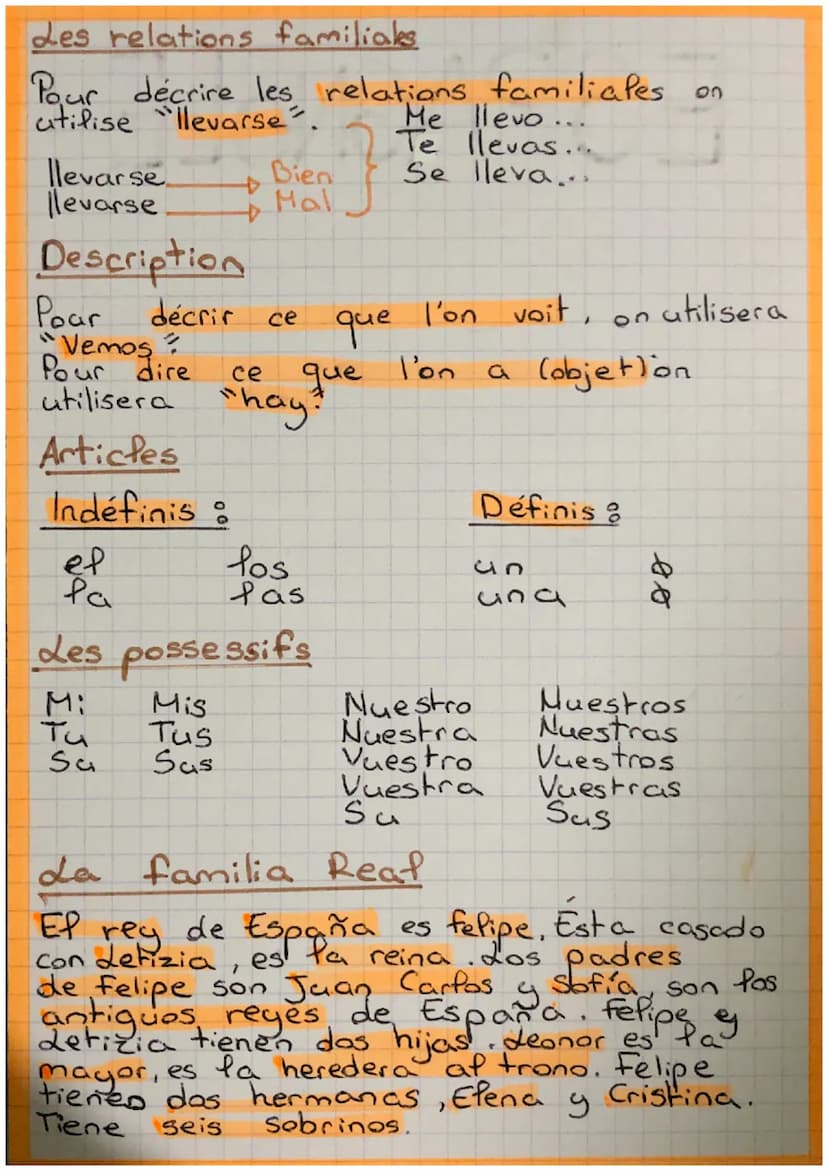 Les relations familiales
Pour décrire les relations familiales on
utilise "llevarse".
Me llevo...
Te llevas...
Se lleva...
llevarse → Bien
llevarse → Mal
Description
Pour décrir ce que l'on voit, on utilisera
"Vemos".
Pour dire ce que l'on a (objet) on
utilisera "hay".
Articles
Indéfinis : Définis :
el los un ø
la las una ø
Les possessifs
Mi Mis Nuestro Nuestros
Tu Tus Nuestra Nuestras
Su Sus Vuestro Vuestros
Vuestra Vuestras
Su Sus
La familia Real
El rey de España es felipe. Ésta casado
con Letizia, es la reina. Los padres
de Felipe son Juan Carlos y Sofía, son los
antiguos reyes de España. Felipe y
Letizia tienen dos hijas. Leonor es la
mayor, es la heredera al trono. Felipe
tienen dos hermanas, Elena y Cristina.
Tiene seis sobrinos.